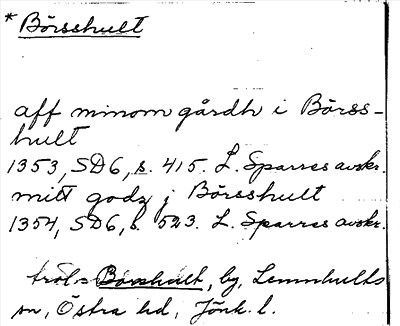 * Börsshult
aff minom gårdh i Börss-
hult
1353, SD6, s. 415. L. Sparres avskr.
mitt godz j Börsshult
1354, SD6, s. 523. L. Sparres avskr.
trol. = Bosshult, by, Lemnhults
sn, Östra hd, Jönk. l.